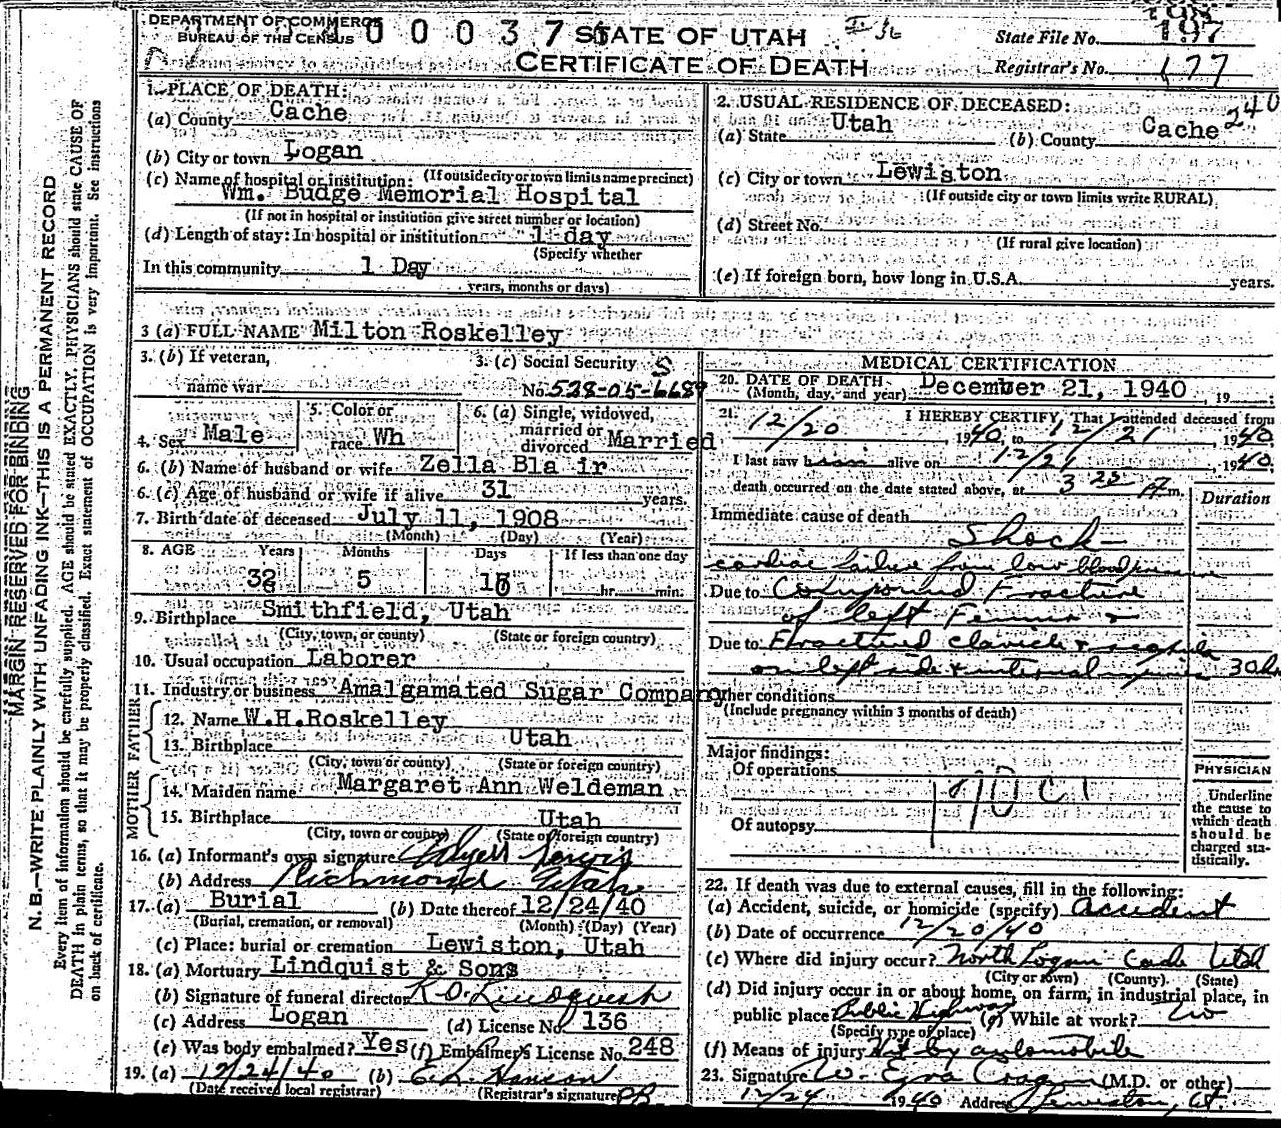 DEPARTMENT OF COMMERCE
BUREAU OF THE CENSUS
STATE OF UTAH
CERTIFICATE OF DEATH
State File No. 197
Registrar's No. 177
MARGIN RESERVED FOR BINDING
N. B.—WRITE PLAINLY WITH UNFADING INK—THIS IS A PERMANENT RECORD
Every item of information should be carefully supplied. AGE should be stated EXACTLY. PHYSICIANS should state CAUSE OF
DEATH in plain terms, so that it may be properly classified. Exact statement of OCCUPATION is very important. See instructions
on back of certificate.
1. PLACE OF DEATH:
(a) County Cache
(b) City or town Logan
(If outside city or town limits name precinct)
(c) Name of hospital or institution:
Wm. Budge Memorial Hospital
(If not in hospital or institution give street number or location)
(d) Length of stay: In hospital or institution 1 day
(Specify whether
In this community 1 Day
years, months or days)
2. USUAL RESIDENCE OF DECEASED: 240
(a) State Utah (b) County Cache
(c) City or town Lewiston
(If outside city or town limits write RURAL)
(d) Street No.
(If rural give location)
(e) If foreign born, how long in U.S.A. years.
3 (a) FULL NAME Milton Roskelley
3. (b) If veteran,
name war
3. (c) Social Security
No. 528-05-6689
4. Sex Male
5. Color or
race Wh
6. (a) Single, widowed,
married or
divorced Married
6. (b) Name of husband or wife Zella Bla ir
6. (c) Age of husband or wife if alive 31 years.
7. Birth date of deceased July 11, 1908
(Month) (Day) (Year)
8. AGE Years Months Days If less than one day
32 5 10 hr. min.
9. Birthplace Smithfield, Utah
(City, town, or county) (State or foreign country)
10. Usual occupation Laborer
11. Industry or business Amalgamated Sugar Company
FATHER
12. Name W.H.Roskelley
13. Birthplace Utah
(City, town or county) (State or foreign country)
MOTHER
14. Maiden name Margaret Ann Weldeman
15. Birthplace Utah
(City, town or county) (State or foreign country)
16. (a) Informant's own signature
(b) Address Richmond Utah
17. (a) Burial (b) Date thereof 12/24/40
(Burial, cremation, or removal) (Month) (Day) (Year)
(c) Place: burial or cremation Lewiston, Utah
18. (a) Mortuary Lindquist & Sons
(b) Signature of funeral director R.O. Lindquist
(c) Address Logan (d) License No. 136
(e) Was body embalmed? Yes (f) Embalmer's License No. 248
19. (a) 12/24/40 (b) E.L. Hanson
(Date received local registrar) (Registrar's signature)
MEDICAL CERTIFICATION
20. DATE OF DEATH December 21, 1940, 19
(Month, day, and year)
21. I HEREBY CERTIFY, That I attended deceased from
12/20, 1940, to 12/21, 1940.
I last saw him alive on 12/21, 1940.
death occurred on the date stated above, at 3 25 P.m.
Duration
Immediate cause of death
Shock
cardiac failure from low blood pressure
Due to Compound Fracture
of left Femur &
Due to Fractured clavicle & scapula
on left side & internal injuries
Other conditions
(Include pregnancy within 3 months of death)
Major findings:
Of operations
Of autopsy
PHYSICIAN
Underline
the cause to
which death
should be
charged sta-
tistically.
22. If death was due to external causes, fill in the following:
(a) Accident, suicide, or homicide (specify) Accident
(b) Date of occurrence 12/20/40
(c) Where did injury occur? North Logan Cache Utah
(City or town) (County) (State)
(d) Did injury occur in or about home, on farm, in industrial place, in
public place? Public Highway While at work? No
(Specify type of place)
(f) Means of injury Hit by automobile
23. Signature W. Ezra Cragun (M.D. or other)
12/24 1940 Address Lewiston, Ut.